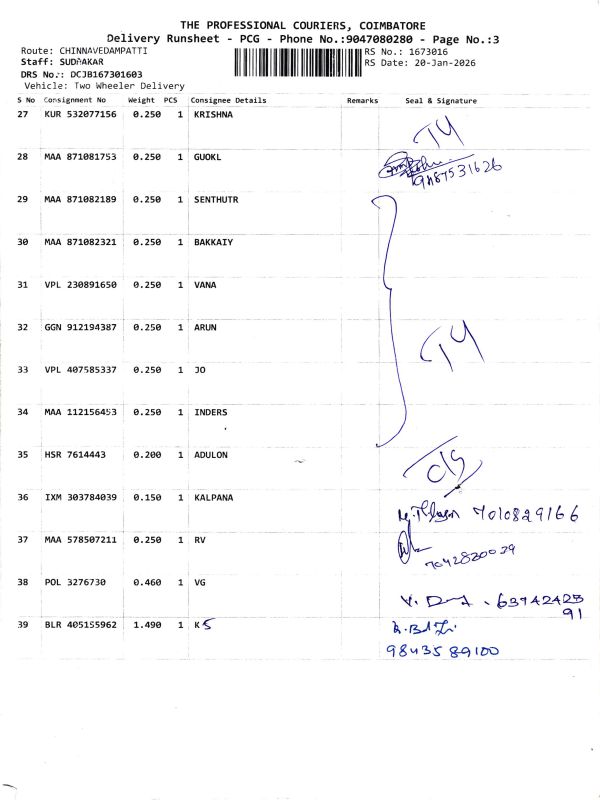 THE PROFESSIONAL COURIERS, COIMBATORE
Delivery Runsheet - PCG - Phone No.:9047080280 - Page No.:3
Route: CHINNAVEDAMPATTI
RS No.: 1673016
Staff: SUDHAKAR
RS Date: 20-Jan-2026
DRS No.: DCJB167301603
Vehicle: Two Wheeler Delivery
S No Consignment No Weight PCS Consignee Details Remarks Seal & Signature
27 KUR 532077156 0.250 1 KRISHNA
28 MAA 871081753 0.250 1 GUOKL
29 MAA 871082189 0.250 1 SENTHUTR
30 MAA 871082321 0.250 1 BAKKAIY
31 VPL 230891650 0.250 1 VANA
32 GGN 912194387 0.250 1 ARUN
33 VPL 407585337 0.250 1 JO
34 MAA 112156453 0.250 1 INDERS
35 HSR 7614443 0.200 1 ADULON
36 IXM 303784039 0.150 1 KALPANA 7010829166
37 MAA 578507211 0.250 1 RV
38 POL 3276730 0.460 1 VG 63742423
91
39 BLR 405155962 1.490 1 KS
9843589100